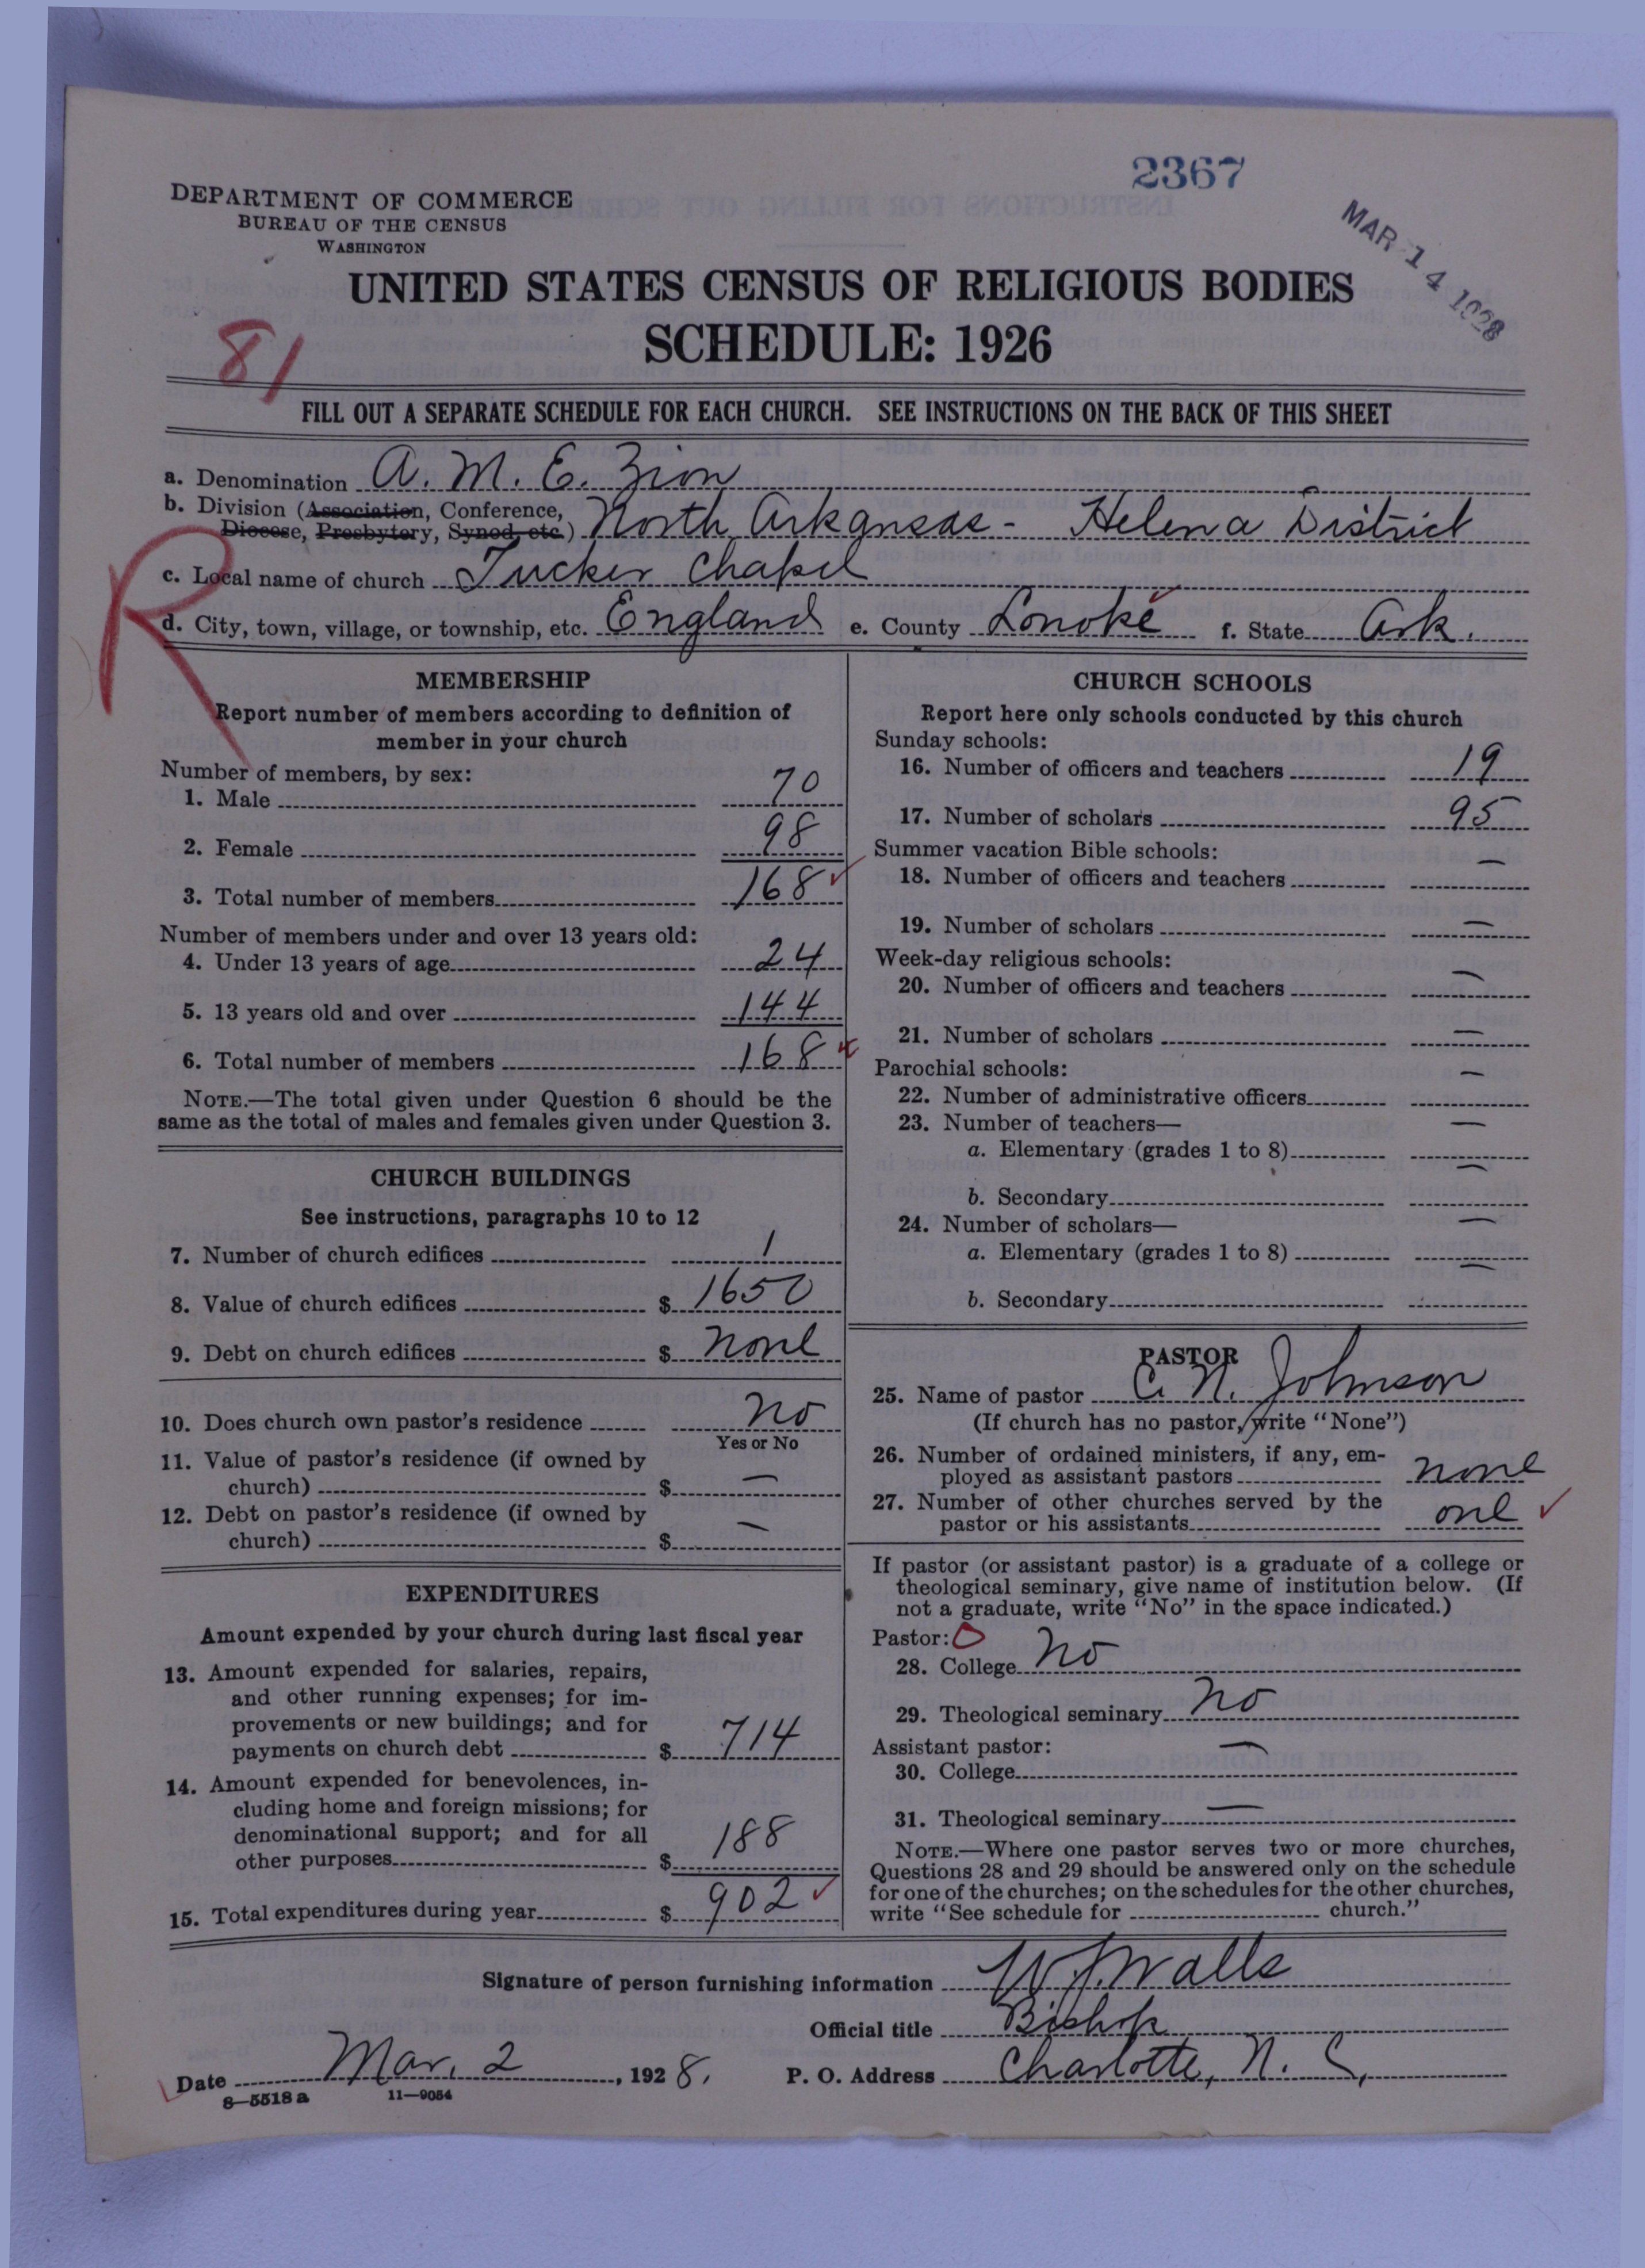 2367
MAR 14 1928
DEPARTMENT OF COMMERCE
BUREAU OF THE CENSUS
WASHINGTON
UNITED STATES CENSUS OF RELIGIOUS BODIES
SCHEDULE: 1926
81
FILL OUT A SEPARATE SCHEDULE FOR EACH CHURCH. SEE INSTRUCTIONS ON THE BACK OF THIS SHEET
R
a. Denomination A. M. E. Zion
b. Division (Association, Conference,
Diocese, Presbytery, Synod, etc.) North Arkansas - Helena District
c. Local name of church Tucker Chapel
d. City, town, village, or township, etc. England e. County Lonoke f. State Ark.
MEMBERSHIP
Report number of members according to definition of
member in your church
Number of members, by sex:
1. Male 70
2. Female 98
3. Total number of members 168
Number of members under and over 13 years old:
4. Under 13 years of age 24
5. 13 years old and over 144
6. Total number of members 168
NOTE.—The total given under Question 6 should be the
same as the total of males and females given under Question 3.
CHURCH BUILDINGS
See instructions, paragraphs 10 to 12
7. Number of church edifices 1
8. Value of church edifices $ 1650
9. Debt on church edifices $ none
10. Does church own pastor's residence no
Yes or No
11. Value of pastor's residence (if owned by
church) $ —
12. Debt on pastor's residence (if owned by
church) $ —
EXPENDITURES
Amount expended by your church during last fiscal year
13. Amount expended for salaries, repairs,
and other running expenses; for im-
provements or new buildings; and for
payments on church debt $ 714
14. Amount expended for benevolences, in-
cluding home and foreign missions; for
denominational support; and for all
other purposes $ 188
15. Total expenditures during year $ 902
CHURCH SCHOOLS
Report here only schools conducted by this church
Sunday schools:
16. Number of officers and teachers 19
17. Number of scholars 95
Summer vacation Bible schools:
18. Number of officers and teachers —
19. Number of scholars —
Week-day religious schools:
20. Number of officers and teachers —
21. Number of scholars —
Parochial schools:
22. Number of administrative officers —
23. Number of teachers—
a. Elementary (grades 1 to 8) —
b. Secondary —
24. Number of scholars—
a. Elementary (grades 1 to 8) —
b. Secondary —
PASTOR
25. Name of pastor C. N. Johnson
(If church has no pastor, write "None")
26. Number of ordained ministers, if any, em-
ployed as assistant pastors none
27. Number of other churches served by the
pastor or his assistants one
If pastor (or assistant pastor) is a graduate of a college or
theological seminary, give name of institution below. (If
not a graduate, write "No" in the space indicated.)
Pastor:
28. College no
29. Theological seminary no
Assistant pastor:
30. College —
31. Theological seminary —
NOTE.—Where one pastor serves two or more churches,
Questions 28 and 29 should be answered only on the schedule
for one of the churches; on the schedules for the other churches,
write "See schedule for church."
Signature of person furnishing information W. J. Walls
Official title Bishop
Date Mar. 2, 1928. P. O. Address Charlotte, N. C.
8—5518 a 11—9054